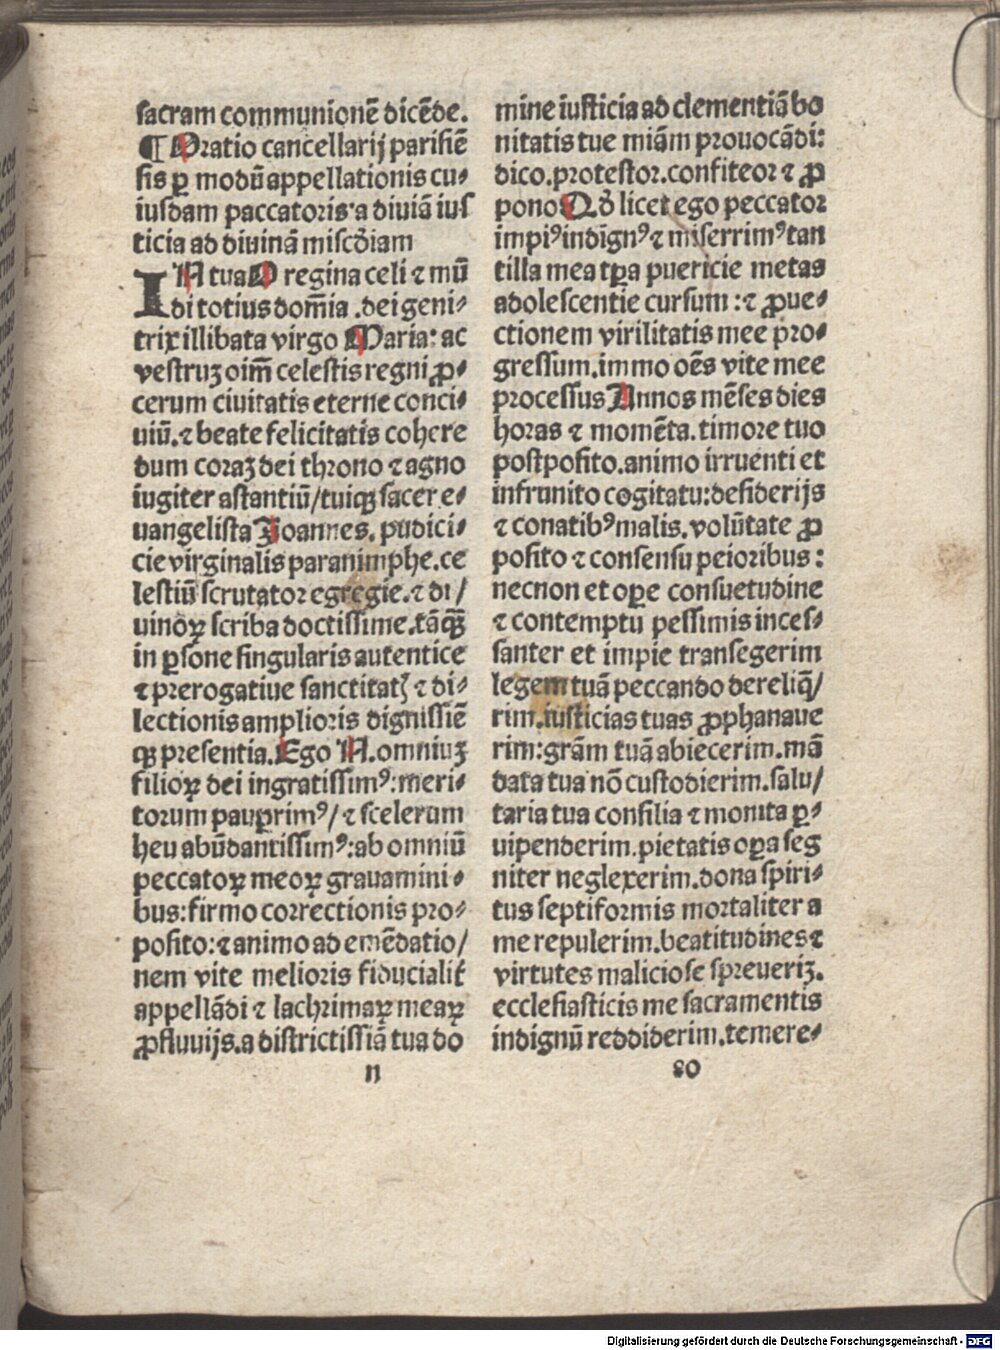 sacram communionē dicēde.
¶ Oratio cancellarij parisiē
sis ꝑ modū appellationis cu⸗
iusdam paccatoris a diuiā iuſ
ticia ad diuinā misc̄diam
IN tua O regina celi ⁊ mū
di totius dom̄ia .dei geni⸗
trix illibata virgo Maria: ac
vestruꝫ oim̄ celestis regni ꝓ⸗
cerum ciuitatis eterne conci⸗
uiū.⁊ beate felicitatis cohere
dum coraꝫ dei throno ⁊ agno
iugiter astantiū/tuiqꝫ sacer e⸗
uangelista Joannes. pudici⸗
cie virginalis paranimphe.ce
lestiū scrutator egregie.⁊ di/
uinoꝝ scriba doctissime.tāqꝫ̄
in ꝑsone singularis autentice
⁊ prerogatiue sanctitatꝭ ⁊ di⸗
lectionis amplioris dignissiē
qꝫ presentia. Ego N. omniuꝫ
filioꝝ dei ingratissimꝰ: meri⸗
torum pauꝑrimꝰ/ ⁊ scelerum
heu abūdantissimꝰ: ab omniū
peccatoꝝ meoꝝ grauamini⸗
bus: firmo correctionis pro⸗
posito: ⁊ animo ad emēdatio/
nem vite melioris fiducialiť
appellādi ⁊ lachrimaꝝ meaꝝ
ꝓfluuijs.a districtissiā tua do
mine iusticia ad clementiā bo
nitatis tue miām prouocādi:
dico.protestor.confiteor ⁊ ꝓ
pono Qđ licet ego peccator
impiꝰ indignꝰ ⁊ miserrimꝰ tan
tilla mea tꝑa puericie metas
adolescentie cursum : ⁊ ꝓue⸗
ctionem virilitatis mee pro⸗
gressum.immo oēs vite mee
processus Annos mēses dies
horas ⁊ momēta. timore tuo
postposito.animo irruenti et
infrunito cogitatu: desiderijs
⁊ conatibꝰ malis. volūtate ꝓ
posito ⁊ consensu peioribus :
necnon et oꝑe consuetudine
⁊ contemptu pessimis inces⸗
santer et impie transegerim
legem tuā peccando dereliq̄/
rim.iusticias tuas ꝓphanaue
rim: grām tuā abiecerim. mā
data tua nō custodierim. salu/
taria tua consilia ⁊ monita ꝑ⸗
uipenderim. pietatis oꝑa seg
niter neglexerim. dona spiri⸗
tus septiformis mortaliter a
me repulerim. beatitudines ⁊
virtutes maliciose spreueriꝫ.
ecclesiasticis me sacramentis
indignū reddiderim. temere⸗
n
80
Digitalisierung gefördert durch die Deutsche Forschungsgemeinschaft - DFG